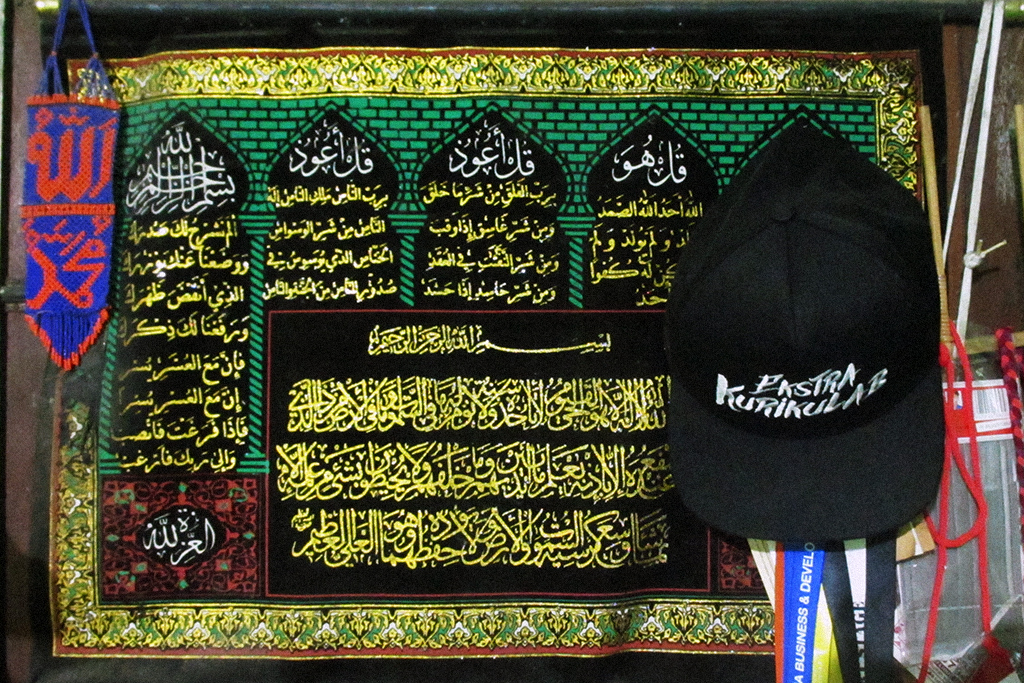 الله
محمد
بسم الله الرحمن الرحيم
ألم نشرح لك صدرك
ووضعنا عنك وزرك
الذي أنقض ظهرك
ورفعنا لك ذكرك
فإن مع العسر يسرا
إن مع العسر يسرا
فإذا فرغت فانصب
وإلى ربك فارغب
العزة لله
قل أعوذ
برب الناس ملك الناس إله
الناس من شر الوسواس
الخناس الذي يوسوس في
صدور الناس من الجنة والناس
قل أعوذ
برب الفلق من شر ما خلق
ومن شر غاسق إذا وقب
ومن شر النفثت في العقد
ومن شر حاسد إذا حسد
قل هو
الله أحد الله الصمد
يلد ولم يولد ولم
يكن له كفوا
أحد
بسم الله الرحمن الرحيم
الله لا إله إلا هو الحي القيوم لا تأخذه سنة ولا نوم له ما في السموات وما في الأرض من ذا الذي
يشفع عنده إلا بإذنه يعلم ما بين أيديهم وما خلفهم ولا يحيطون بشيء من علمه إلا
بما شاء وسع كرسيه السموات والأرض ولا يؤده حفظهما وهو العلي العظيم
EKSTRA
KURIKULAR
A BUSINESS & DEVELO